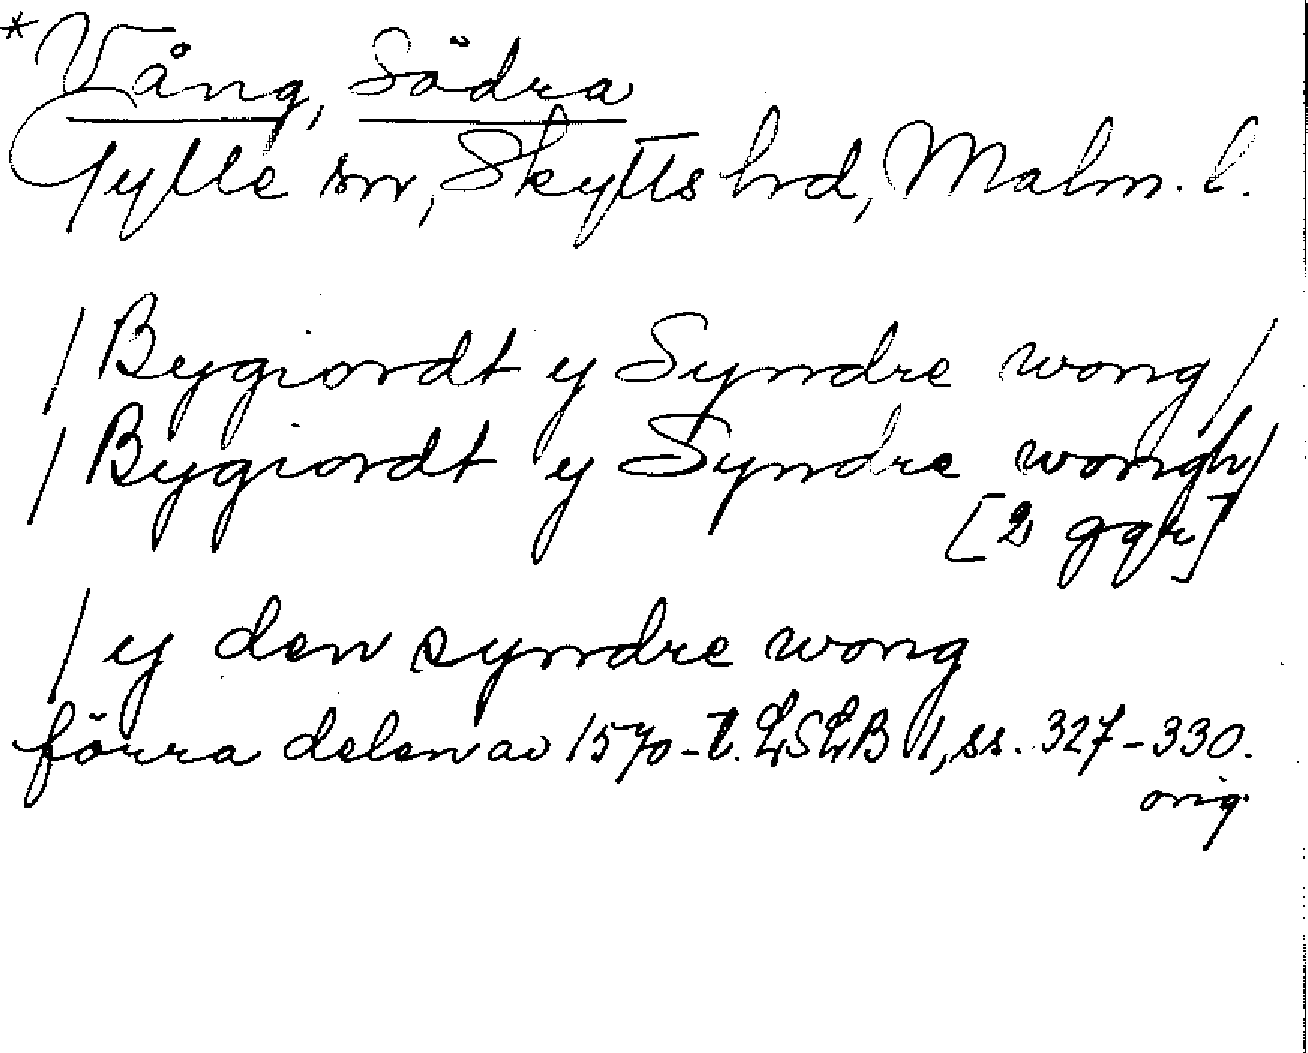 *Vång, Södra
Gylle sn, Skytts hrd, Malm. l.
/Bygiordt y Syndre wong/
/Bygiordt y Syndre wongh/
[2 ggr]
/y den syndre wong
förra delen av 1570-t. LSLB 1, ss. 327-330.
orig.